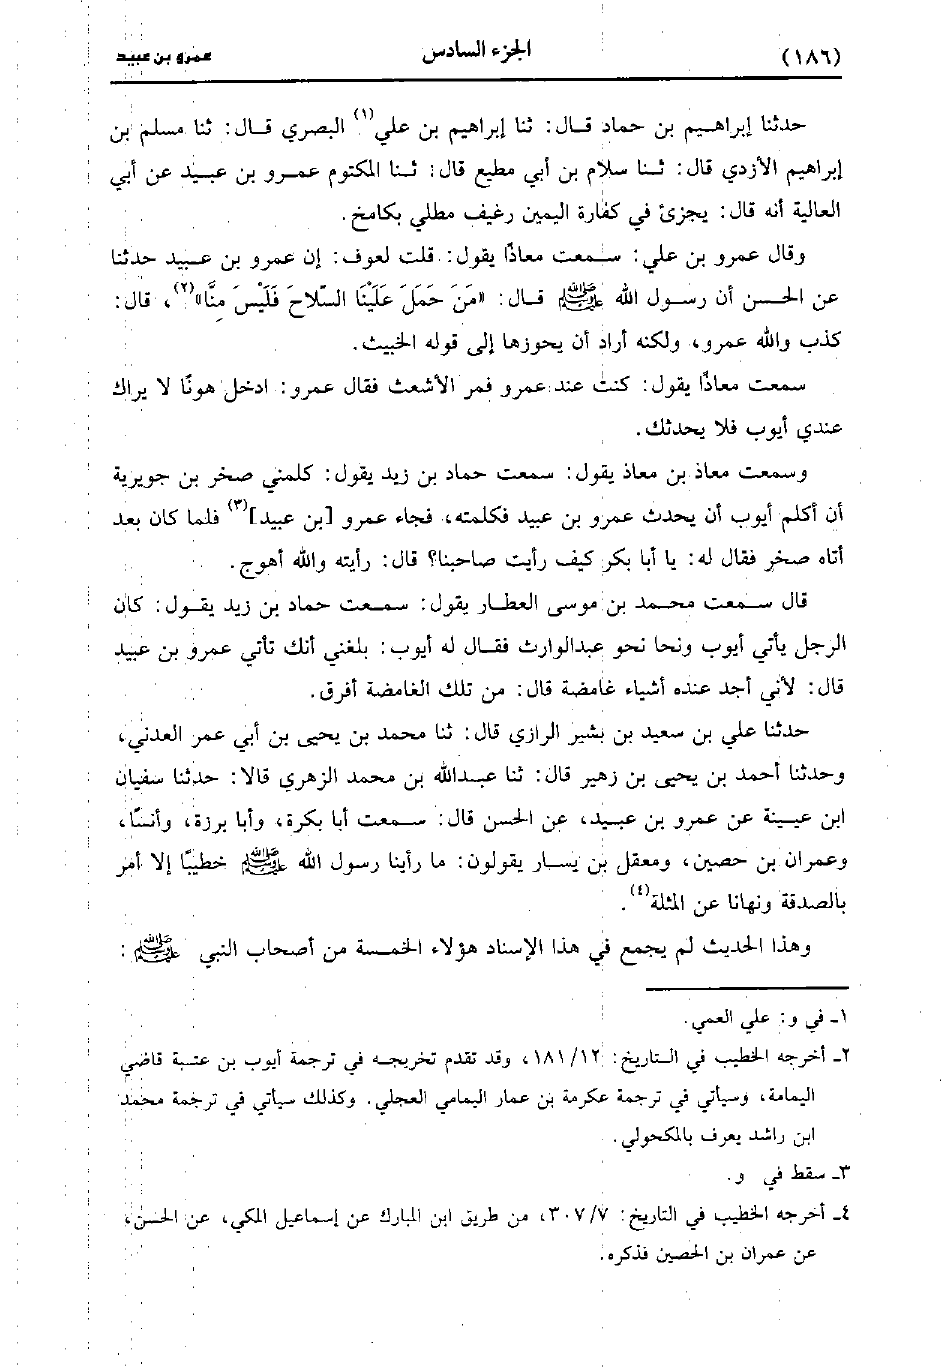 (١٨٦) الجزء السادس عمرو بن عبيد
حدثنا إبراهيم بن حماد قال: ثنا إبراهيم بن علي(١) البصري قال: ثنا مسلم بن
إبراهيم الأزدي قال: ثنا سلام بن أبي مطيع قال: ثنا المكتوم عمرو بن عبيد عن أبي
العالية أنه قال: يجزئ في كفارة اليمين رغيف مطلي بكامخ.
وقال عمرو بن علي: سمعت معاذًا يقول: قلت لعوف: إن عمرو بن عبيد حدثنا
عن الحسن أن رسول الله ﷺ قال: «مَنَ حَمَلَ عَلَيْنَا السِّلاحَ فَلَيْسَ مِنَّا»(٢)، قال:
كذب والله عمرو، ولكنه أراد أن يحوزها إلى قوله الخبيث.
سمعت معاذًا يقول: كنت عند عمرو فمر الأشعث فقال عمرو: ادخل هونًا لا يراك
عندي أيوب فلا يحدثك.
وسمعت معاذ بن معاذ يقول: سمعت حماد بن زيد يقول: كلمني صخر بن جويرية
أن أكلم أيوب أن يحدث عمرو بن عبيد فكلمته، فجاء عمرو [بن عبيد](٣) فلما كان بعد
أتاه صخر فقال له: يا أبا بكر كيف رأيت صاحبنا؟ قال: رأيته والله أهوج.
قال سمعت محمد بن موسى العطار يقول: سمعت حماد بن زيد يقول: كان
الرجل يأتي أيوب ونحا نحو عبدالوارث فقال له أيوب: بلغني أنك تأتي عمرو بن عبيد
قال: لأني أجد عنده أشياء غامضة قال: من تلك الغامضة أفرق.
حدثنا علي بن سعيد بن بشير الرازي قال: ثنا محمد بن يحيى بن أبي عمر العدني،
وحدثنا أحمد بن يحيى بن زهير قال: ثنا عبدالله بن محمد الزهري قالا: حدثنا سفيان
ابن عيينة عن عمرو بن عبيد، عن الحسن قال: سمعت أبا بكرة، وأبا برزة، وأنسًا،
وعمران بن حصين، ومعقل بن يسار يقولون: ما رأينا رسول الله ﷺ خطيبًا إلا أمر
بالصدقة ونهانا عن المثلة(٤).
وهذا الحديث لم يجمع في هذا الإسناد هؤلاء الخمسة من أصحاب النبي ﷺ :
١ـ في و: علي العمي.
٢ـ أخرجه الخطيب في التاريخ: ١٨١/١٢، وقد تقدم تخريجه في ترجمة أيوب بن عتبة قاضي
اليمامة، وسيأتي في ترجمة عكرمة بن عمار اليمامي العجلي. وكذلك سيأتي في ترجمة محمد
ابن راشد يعرف بالمكحولي.
٣ـ سقط في و.
٤ـ أخرجه الخطيب في التاريخ: ٣٠٧/٧، من طريق ابن المبارك عن إسماعيل المكي، عن الحسن،
عن عمران بن الحصين فذكره.